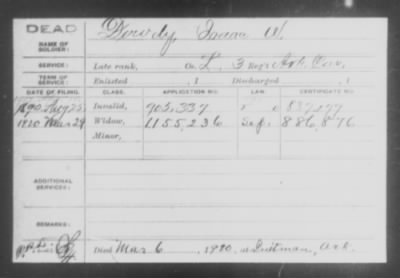 DEAD
NAME OF SOLDIER: Isaac W.
SERVICE: Late rank, Co. L, 3 Reg't Ark. Cav.
TERM OF SERVICE: Enlisted , 1 Discharged , 1
DATE OF FILING. CLASS. APPLICATION NO. LAW. CERTIFICATE NO.
1890 Aug 25 Invalid, 905,337
1920 Mar 29 Widow, 1155,236 886,876
Minor,
ADDITIONAL SERVICES:
REMARKS:
Died Mar 6, 1920, at Quitman, Ark.